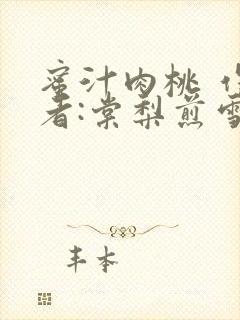 蜜汁肉桃 作
者:棠梨煎雪
丰本